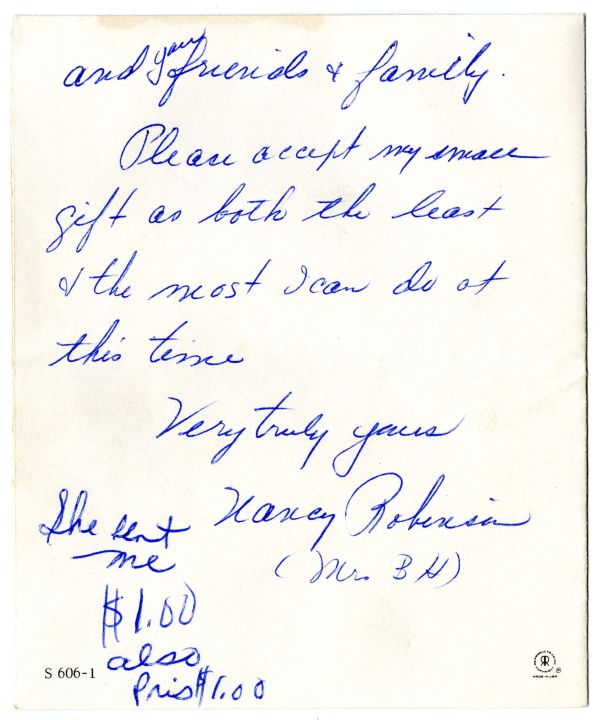 and your friends & family.
Please accept my small
gift as both the least
& the most I can do at
this time
Very truly yours
Nancy Robinson
(Mrs B H)
She sent
me
$1.00
also
$1.00
S 606-1
R
®
MADE IN USA